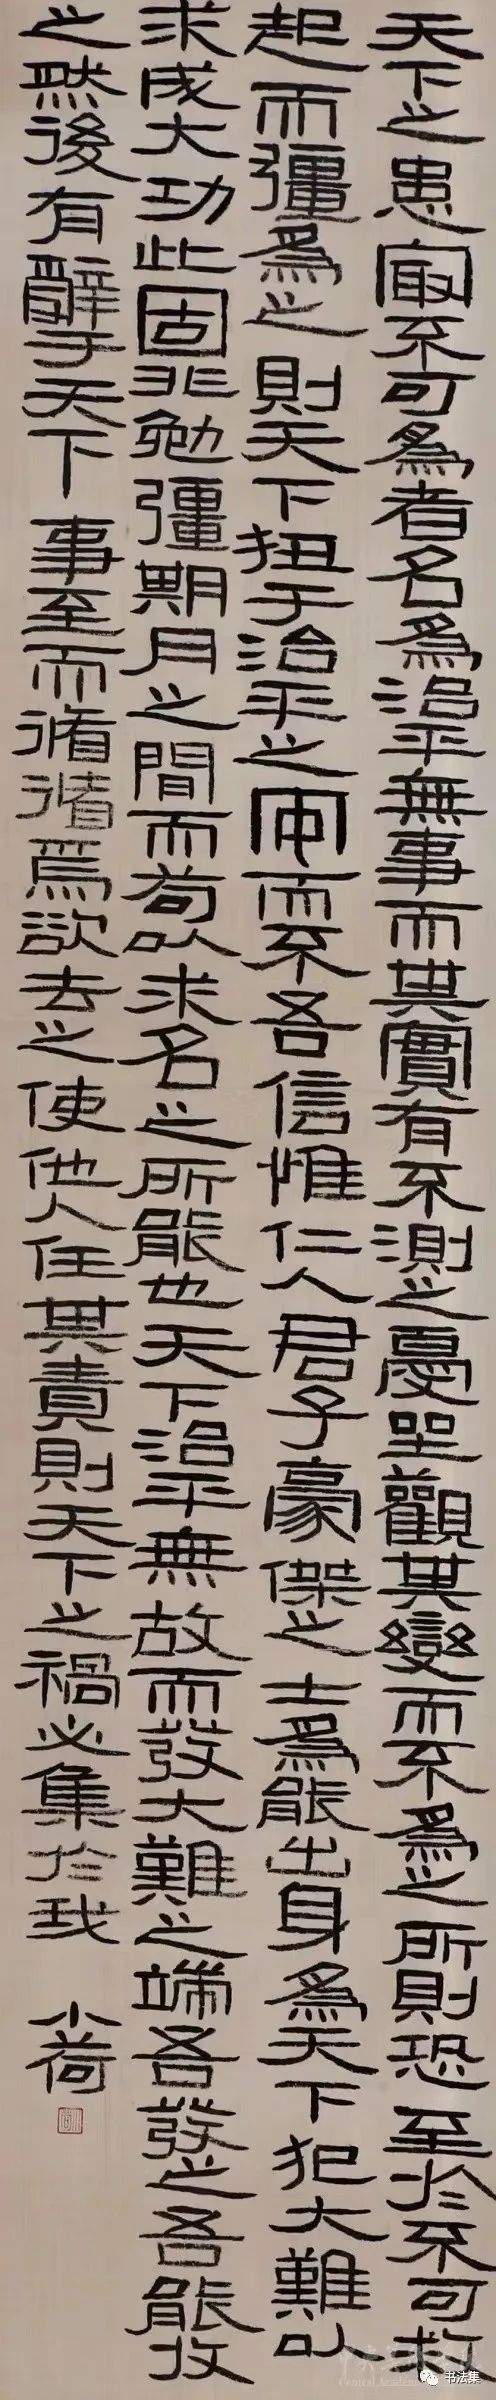 天下之患最不可為者名為治平無事而其實有不測之憂坐觀其變而不為之所則恐至於不可救
起而彊為之則天下狃于治平之安而不吾信惟仁人君子豪傑之士為能出身為天下犯大難以
求成大功此固非勉彊期月之間而苟以求名之所能也天下治平無故而發大難之端吾發之吾能收
之然後有辭于天下事至而循循焉欲去之使他人任其責則天下之禍必集於我
小荷
书法集